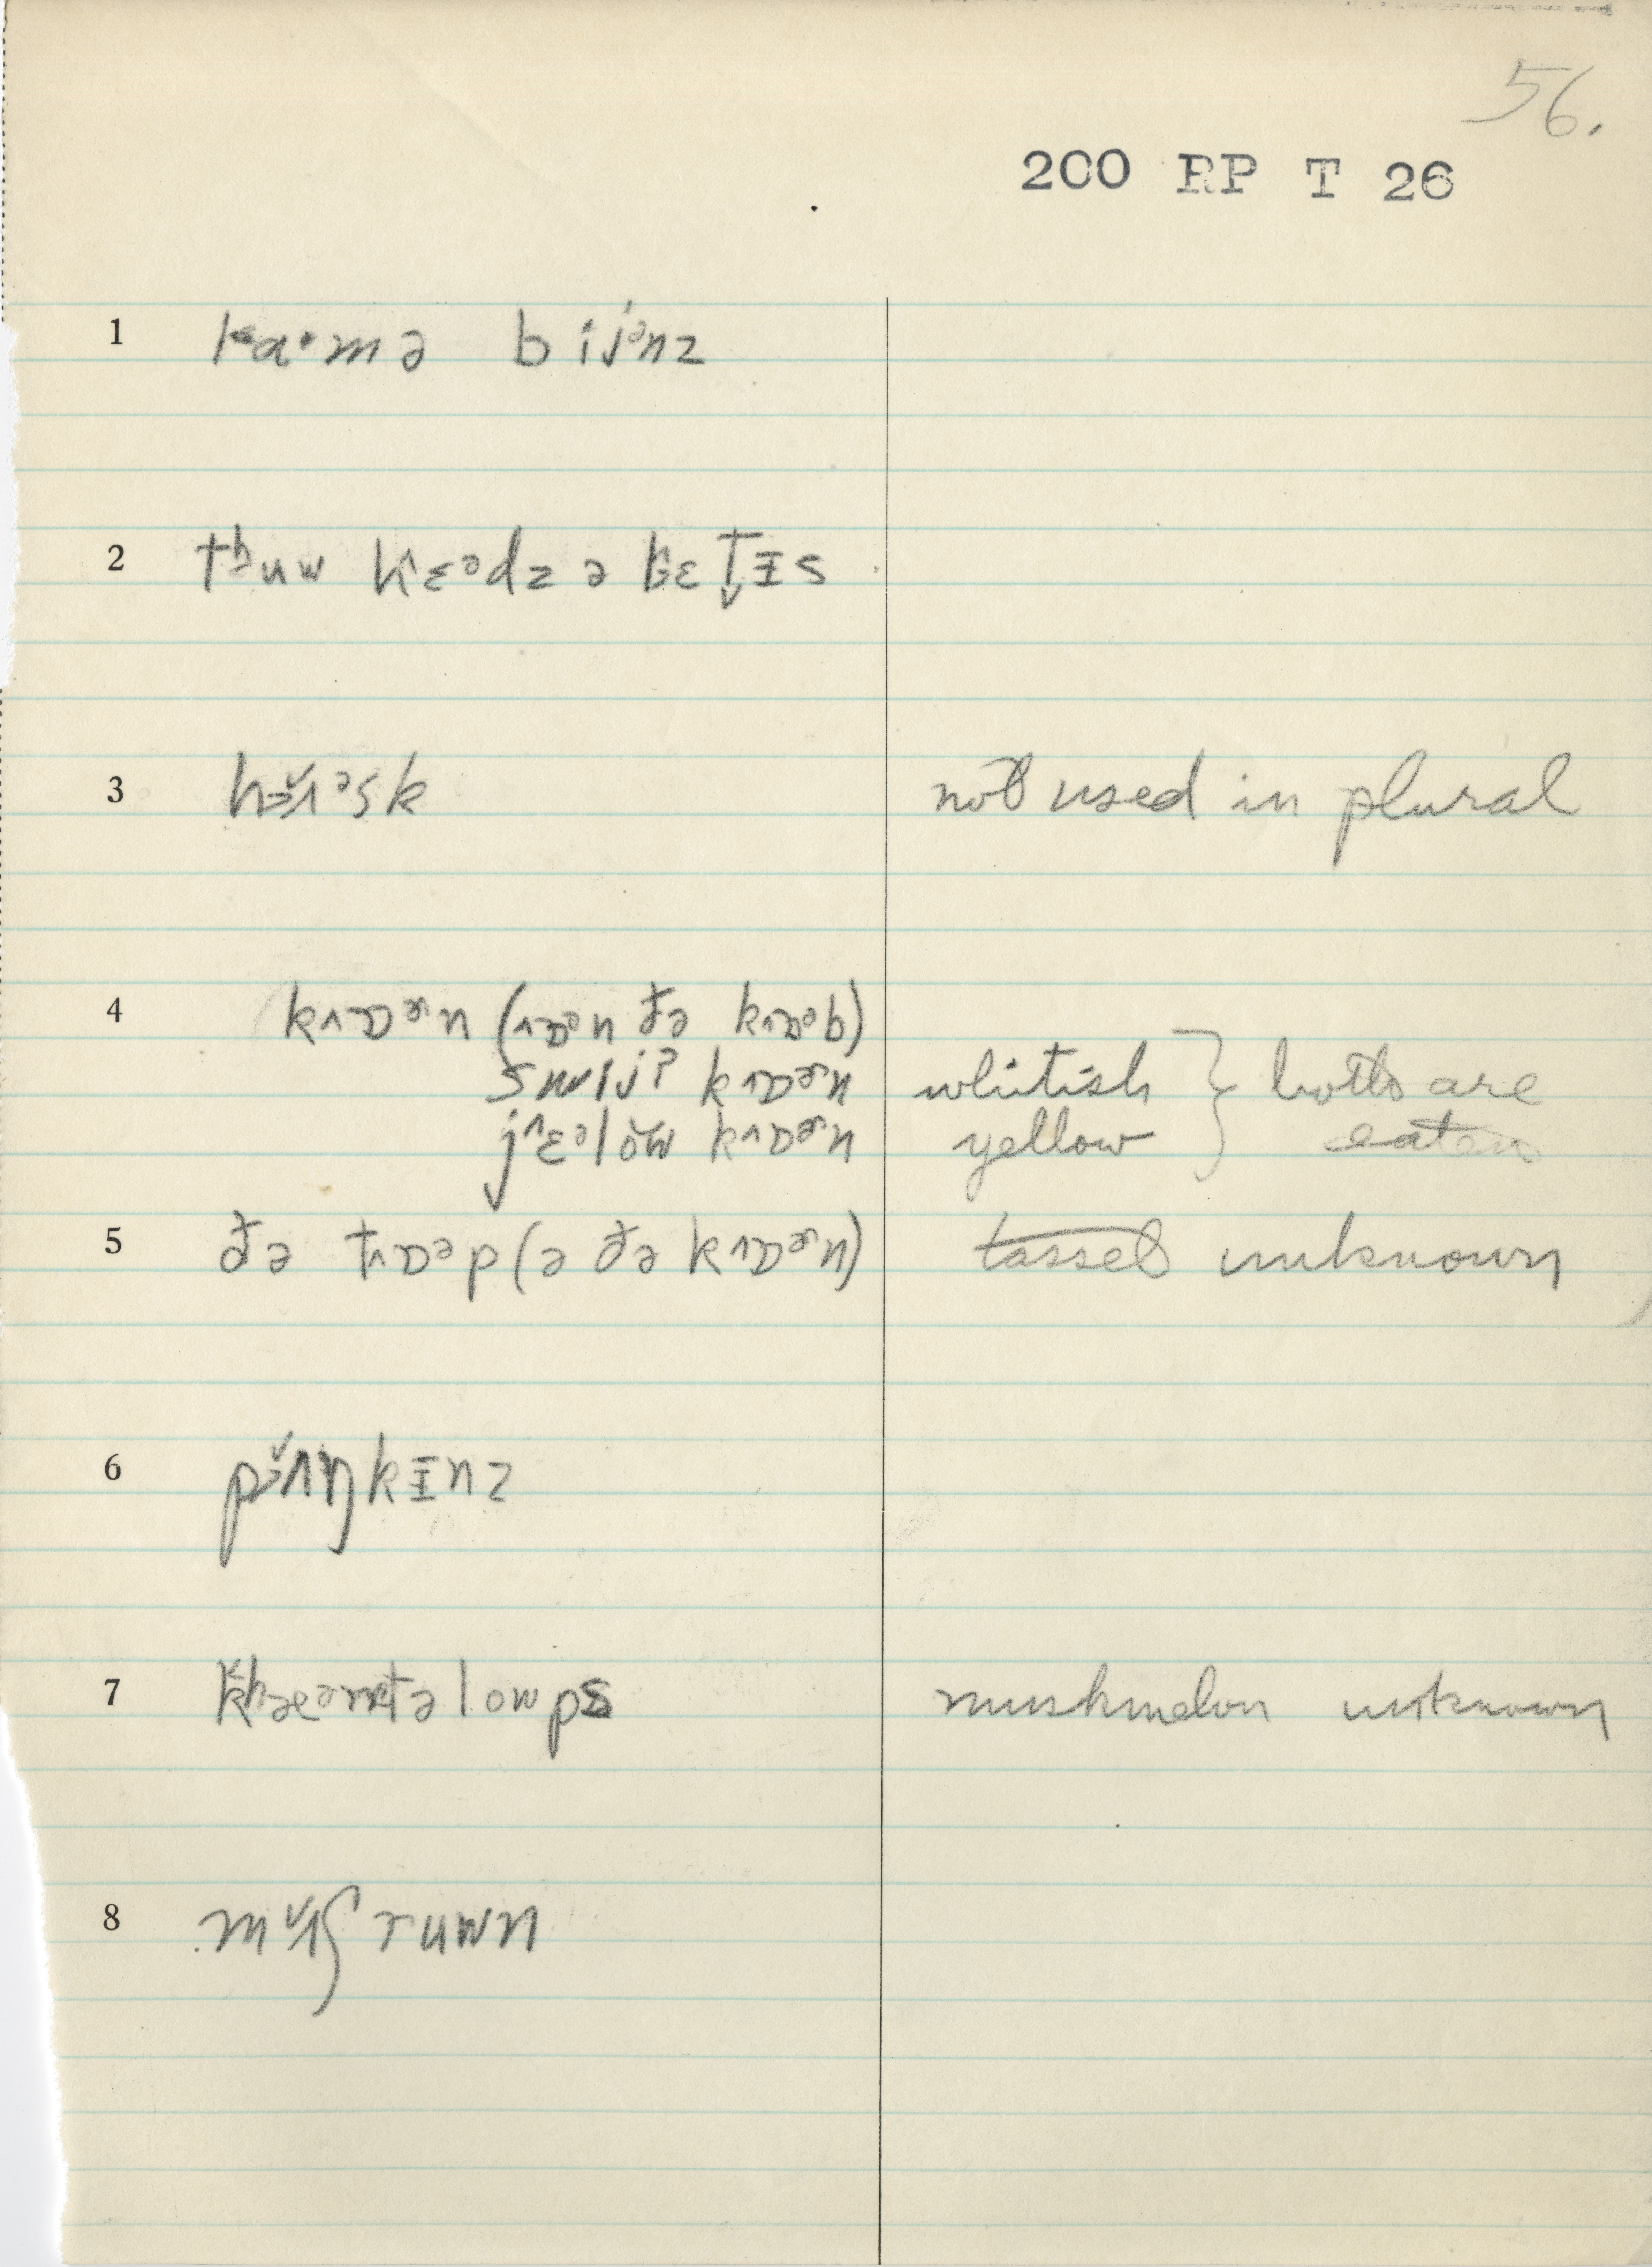 56.
200 RP T 26
1 lɑ·mə bijᵊnz
2 tʰuw hɛᵊdz ə lɛt̬ɪs
3 hɜ̌ʌᵊsk not used in plural
4 kɒɚn (ɒᵊn ðə kɒᵊb)
swijt kɒɚn whitish } both are
jɛᵊlǒw kɒɚn yellow eaten
5 ðə tɒᵊp (ə ðə kɒɚn) tassel unknown
6 pɜ̌ʌŋkɪnz
7 kʰæᵊntəlowps muskmelon unknown
8 mʌ̌ʃruwn